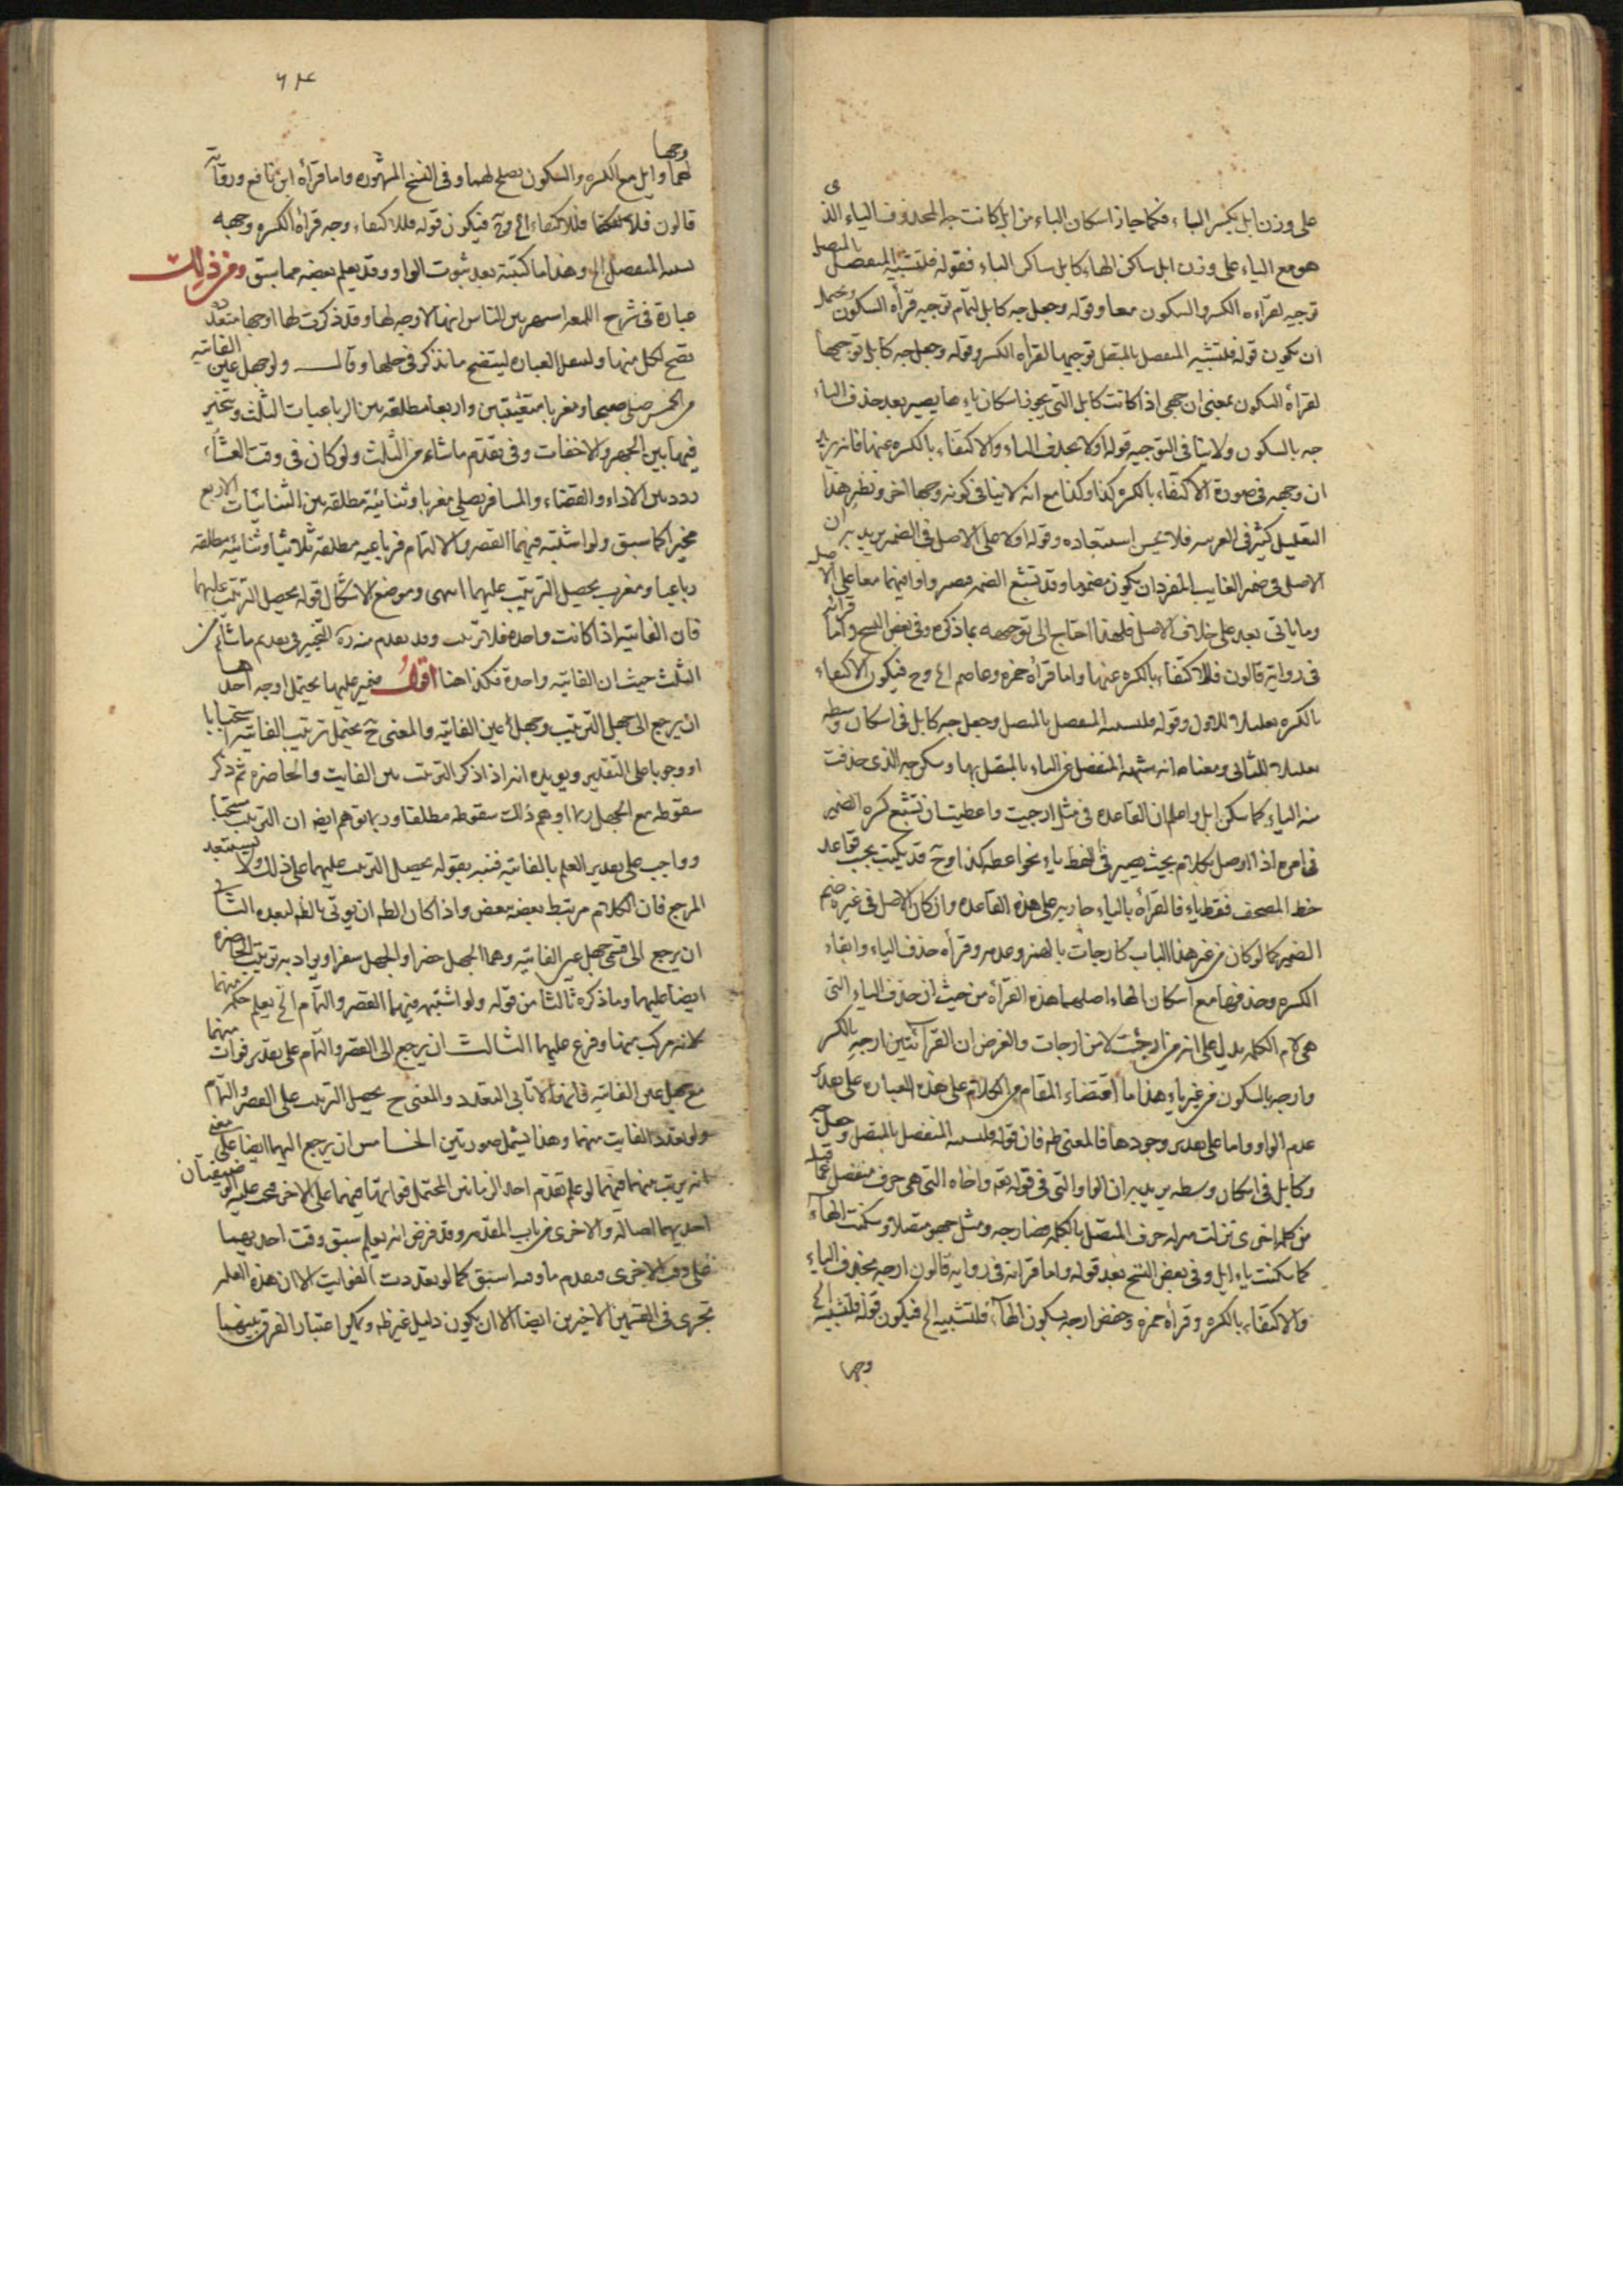 على وزن ابل بكسر الباء فكما جاز اسكان الباء من ابل كانت جه المحذوف الياء الذى
هو مع الياء على وزن ابل ساكن الهاء كابل ساكن الباء فقوله فلتشبيه المنفصل بالمتصل
توجيه لقراءه الكسر والسكون معا وقوله وجعل جه كابل لتمام توجيه قراءه السكون ويحتمل
ان يكون قوله فلتشبيه المنفصل بالمتصل توجيها لقراءه الكسر وقوله وجعل جه كابل توجيها
لقراءه السكون بمعنى ان جهى اذا كانت كابل التى يجوز اسكان
جه بالسكون ولا ينافى التوجيه قوله اولا بحذف الياء والاكتفاء بالكسره عنها فانه يريد
ان وجهه فى صورة الاكتفاء بالكسره كذا وكذا مع انه لا ينافى كونه وجها اخر ونظير هذا
التعليل كثير فى العربيه فلا يحسن استبعاده وقوله اولا على الاصل فى الضمير يريد به ان
الاصل فى ضمير الغايب المفرد ان يكون مضموما وقد تشبع الضمه فيصير واوا فيهما معا على الاصل
وما ياتى بعد على خلاف الاصل فلهذا احتاج الى توجيهه بما ذكره وفى بعض النسخ واما قرائته
فى رواية قالون فللاكتفاء بالكسره عنها واما قراءه حمزه وعاصم الخ وح فيكون الاكتفاء
بالكسره تعليلا للاول وقوله فلتشبيه المنفصل بالمتصل وجعل جه كابل فى اسكان وسطه
تعليلا للثانى ومعناه انه شبه المنفصل عن الياء بالمتصل بها وسكن جه الذى حذفت
منه الياء كما سكن ابل واعلم ان القاعده فى مثل ارجيت واعطيت ان تشبع كسره الضمير
فى امره اذا اوصل بكلام بحيث يصير فى اللفظ ياء نحو اعطه كذا وح قد يكتب بحسب قواعد
خط المصحف فقط ياء فالقراءه بالياء جاريه على هذه القاعده وان كان الاصل فى غيره ضم
الضمير كما لو كان من غير هذا الباب كارجات بالهمز وعدمه وقراءه حذف الياء وابقاء
الكسره وحذفها مع اسكان الهاء اصلهما هذه القراءه من حيث ان حذف الياء التى
هى لام الكلمه يدل على انه من ارجيت لا من ارجات والغرض ان القرائتين ارجه بالكسر
وارجه بالسكون من غير ياء هذا ما اقتضاء المقام من الكلام على هذه العباره على تقدير
عدم الواو واما على تقدير وجودها فالمعنى ظه فان قوله فلتشبيه المنفصل بالمتصل وجعل جه
وكابل فى اسكان وسطه يريد به ان الواو التى فى قوله تع واخاه التى هى حرف منفصل عما قبله
من كلمه اخرى تنزلت منزله حرف المتصل بالكلمه فصار جه ومثل جهو متصلا وسكنت الهاء
كما سكنت باء ابل وفى بعض النسخ بعد قوله واما قرائته فى روايه قالون ارجه بحذف الياء
والاكتفاء بالكسره وقراءه حمزه وحفص ارجه بسكون الهاء فلتشبيه الخ فيكون قوله فلتشبيه الخ
وجها
٦٤
وجها
لهما وابل مع الكسره والسكون يصلح لهما وفى النسخ المشهوره واما قراءه ابن نافع وروايه
قالون فللاكتفاء الخ وح فيكون قوله فللاكتفاء وجه قراءه الكسره وجهه
تشبيه المنفصل الخ وهذا ما كتبته بعد ثبوت الواو وقد يعلم بعضه مما سبق ومن ذلك
عبارة فى شرح اللمعه اشتهر بين الناس انها لا وجه لها وقد ذكرت لها اوجها متعدده
يصح لكل منها ولننقل العباره ليتضح ما نذكر فى حلها وقال ولو جهل عين الفائته
من الخمس صلى صبحا ومغربا متعينتين واربعا مطلقه بين الرباعيات الثلث ويتخير
فيها بين الجهر والاخفات وفى تقدم ما شاء من الثلث ولو كان فى وقت العشاء
ردد بين الاداء والقضاء والمسافر يصلى مغربا وثنائية مطلقه بين الثنائيات الاربع
مخيرا كما سبق ولو اشتبه فيهما القصر والتمام فرباعيه مطلقه ثلاثيا وثنائيه مطلقه
رباعيا ومغرب يحصل الترتيب عليهما انتهى وموضع الاشكال قوله يحصل الترتيب عليهما
فان الفائتة اذا كانت واحده فلا ترتيب وقد تقدم منه ره التخيير فى تقديم ما شاء من
الثلث حيث ان الفائته واحدة فكذا هنا اقول ضمير عليهما يحتمل اوجه احدها
ان يرجع الى جهل الترتيب وجهل عين الفائته والمعنى ح يحتمل ترتيب الفائته استحبابا
او وجوبا على التقدير ويويده انه اذا ذكر الترتيب بين الفايت والحاضره ثم ذكر
سقوطه مع الجهل ربما اوهم ذلك سقوطه مطلقا وربما توهم ايضا ان الترتيب مستحب
وواجب على تقدير العلم بالفائته فنبه بقوله يحصل الترتيب عليهما على ذلك ولا تستبعد
المرجع فان الكلام مرتبط بعضه ببعض واذا كان الظه ان يوتى بالظه لبعده الثانى
ان يرجع الى قسمى جهل عين الفائته وهما الجهل حضرا والجهل سفرا ويراد به ترتيب الحاضره
ايضا عليهما وما ذكره ثالثا من قوله ولو اشتبه فيهما القصر والتمام الخ يعلم حكمه منهما
لانه مركب منهما وفرع عليهما الثالث ان يرجع الى القصر والتمام على تقدير فوات منهما
مع جهل عين الفائته فانهما لا تابى التعدد والمعنى ح يحصل الترتيب على القصر والتمام
ولو تعدد الفايت منهما وهذا يشمل صورتين الخامس ان يرجع اليهما ايضا على معنى
انه يرتب منهما فيهما لو علم تقدم احد الزمانين المحتمل فواتها فيهما على الاخر
احديهما اصاله والاخرى من باب المقدمه وقد فرض انه يعلم سبق وقت احديهما
على وقت الاخرى فيقدم ما وقته اسبق كما لو تعددت الفوايت الا ان هذه العله
تجرى فى القسمين الاخيرين ايضا الا ان يكون دليل غير ظه ويمكن اعتبار الفرق بينهما